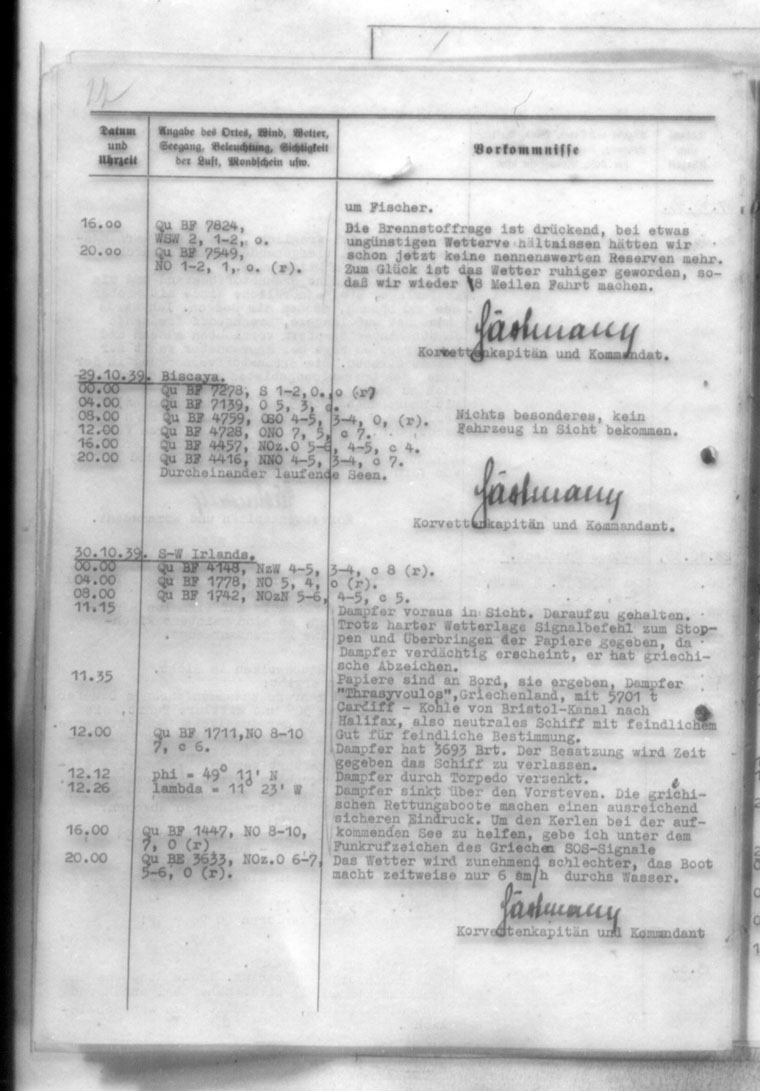 Datum und Uhrzeit
Angabe des Ortes, Wind, Wetter, Seegang, Beleuchtung, Sichtigkeit der Luft, Mondschein usw.
Vorkommnisse
um Fischer.
16.00 Qu BF 7824,
WSW 2, 1-2, o.
20.00 Qu BF 7549,
NO 1-2, 1, o. (r).
Die Brennstoffrage ist drückend, bei etwas
ungünstigen Wetterve hältnaissen hätten wir
schon jetzt keine nennenswerten Reserven mehr.
Zum Glück ist das Wetter ruhiger geworden, so-
daß wir wieder 8 Meilen Fahrt machen.
Korvettenkapitän und Kommandat.
29.10.39. Biscaya.
00.00 Qu BF 7278, S 1-2,0., o (r)
04.00 Qu BF 7139, O 5, 3, c.
08.00 Qu BF 4759, OSO 4-5, 3-4, 0, (r).
12.00 Qu BF 4728, ONO 7, 5, c 7.
16.00 Qu BF 4457, NOz.O 5-6, 4-5, c 4.
20.00 Qu BF 4416, NNO 4-5, 3-4, c 7.
Durcheinander laufende Seen.
Nichts besonderes, kein
Fahrzeug in Sicht bekommen.
Korvettenkapitän und Kommandant.
30.10.39. S-W Irlands.
00.00 Qu BF 4148, NzW 4-5, 3-4, c 8 (r).
04.00 Qu BF 1778, NO 5, 4, o (r).
08.00 Qu BF 1742, NOzN 5-6, 4-5, c 5.
11.15 Dampfer voraus in Sicht. Daraufzu gehalten.
Trotz harter Wetterlage Signalbefehl zum Stop-
pen und Überbringen der Papiere gegeben, da
Dampfer verdächtig erscheint, er hat griechi-
sche Abzeichen.
11.35 Papiere sind an Bord, sie ergeben, Dampfer
"Thrasyvoulos",Griechenland, mit 5701 t
Cardiff - Kohle von Bristol-Kanal nach
Halifax, also neutrales Schiff mit feindlichem
Gut für feindliche Bestimmung.
12.00 Qu BF 1711,NO 8-10
7, c 6.
Dampfer hat 3693 Brt. Der Besatzung wird Zeit
gegeben das Schiff zu verlassen.
12.12 phi = 49° 11' N Dampfer durch Torpedo versenkt.
12.26 lambda = 11° 23' W Dampfer sinkt über den Vorsteven. Die griechi-
schen Rettungsboote machen einen ausreichend
sicheren Eindruck. Um den Kerlen bei der auf-
kommenden See zu helfen, gebe ich unter dem
Funkrufzeichen des Griechen SOS-Signale
16.00 Qu BF 1447, NO 8-10,
7, 0 (r)
20.00 Qu BE 3633, NOz.O 6-7,
5-6, 0 (r).
Das Wetter wird zunehmend schlechter, das Boot
macht zeitweise nur 6 sm/h durchs Wasser.
Korvettenkapitän und Kommandant